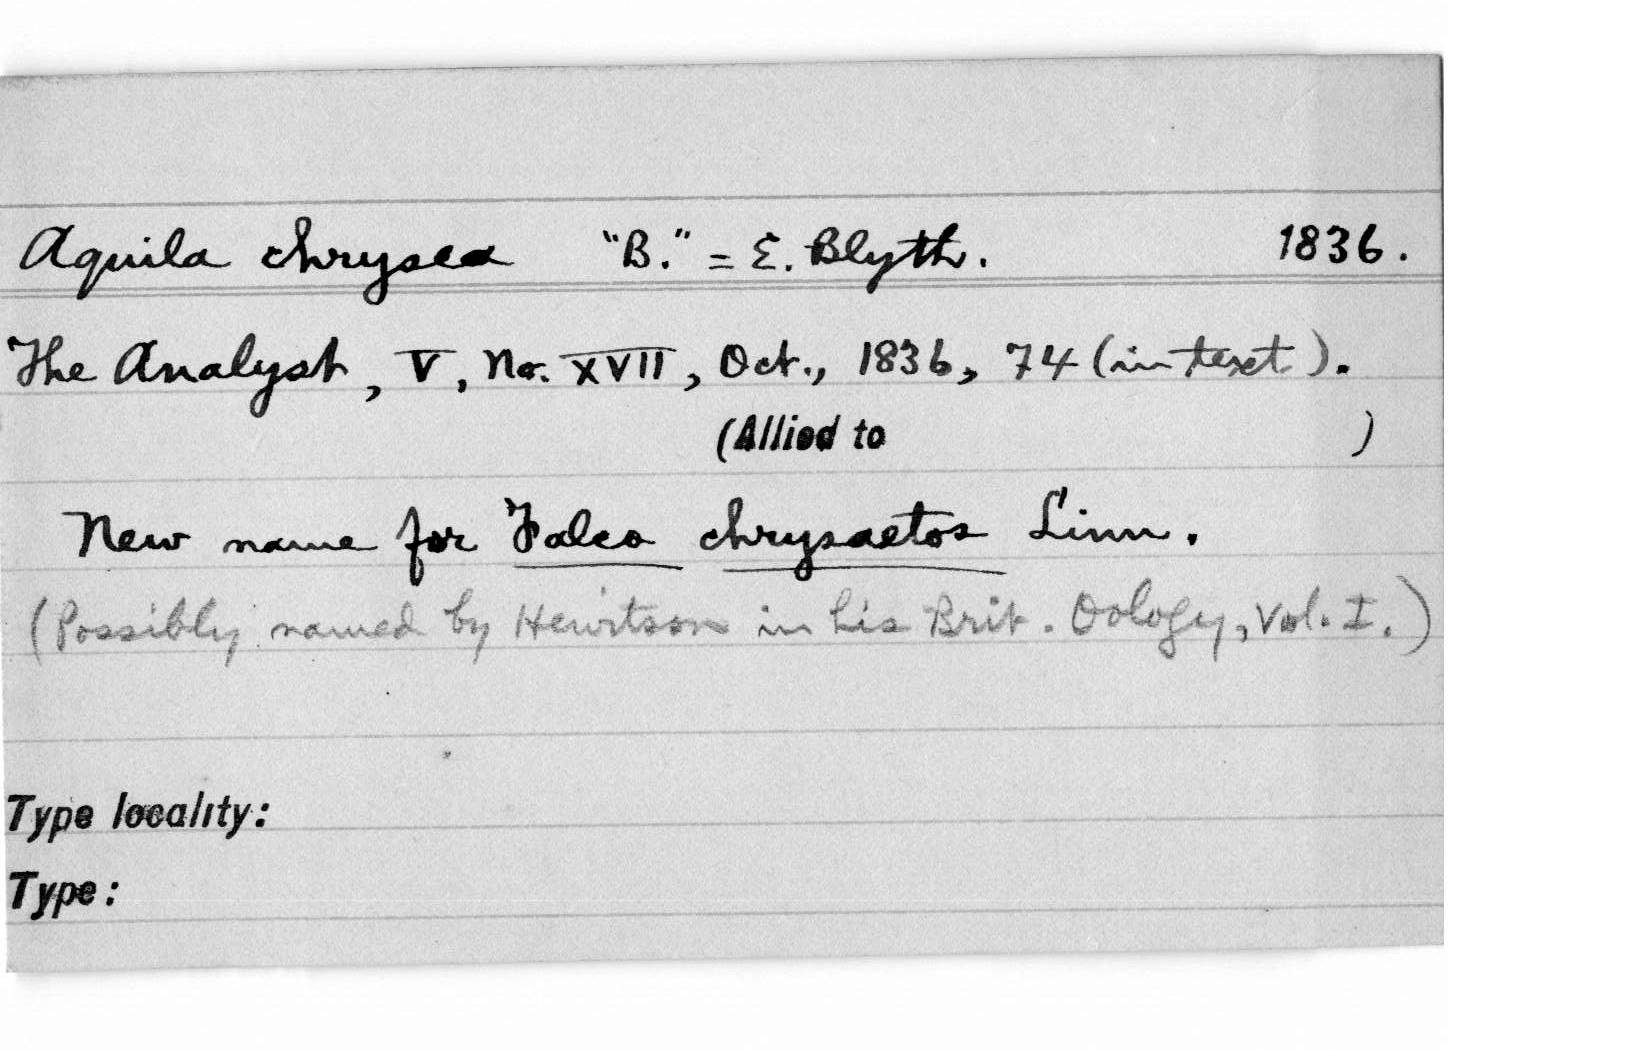 Aquila chrysea "B." = E. Blyth. 1836.
The Analyst, V, No. XVII, Oct., 1836, 74 (in text).
(Allied to )
New name for Falco chrysaetos Linn.
(Possibly named by Hewitson in his Brit. Oology, Vol. I.)
Type locality:
Type: